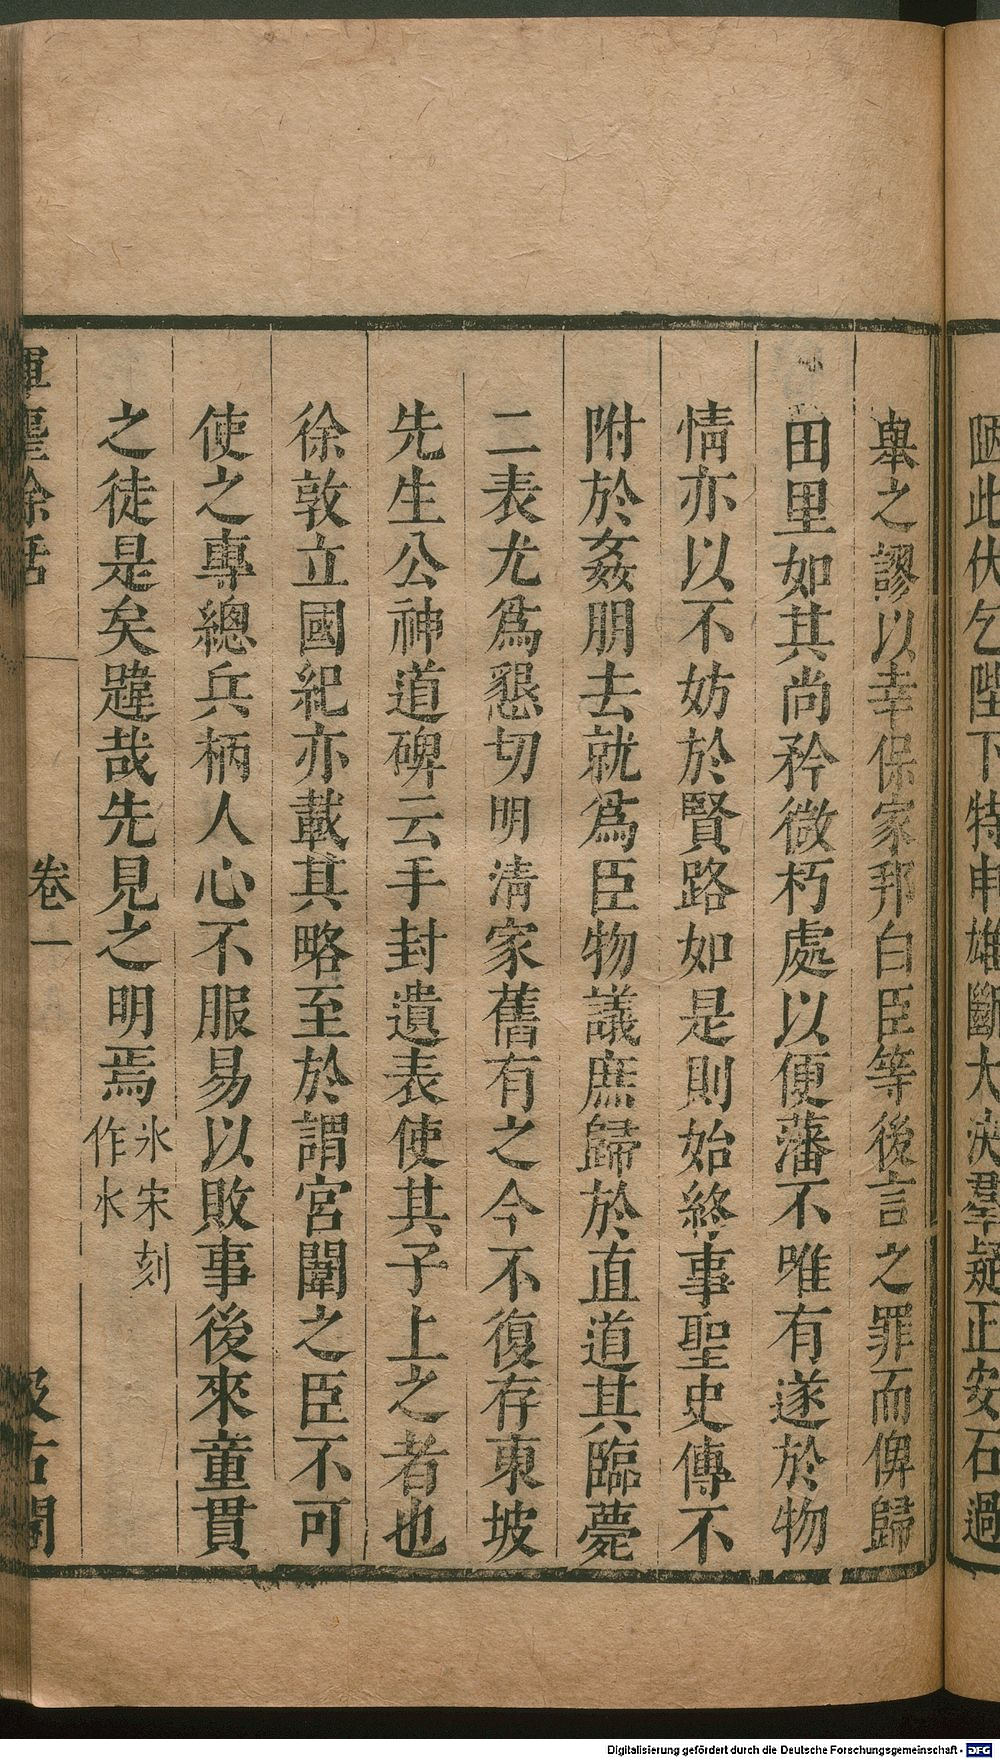 陋此伏乞陛下特申雄斷大決羣疑正安石過
舉之謬以幸保家邦白臣等後言之罪而俾歸
田里如其尚矜微朽處以便藩不唯有遂於物
情亦以不妨於賢路如是則始終事聖史傳不
附於姦朋去就爲臣物議庶歸於直道其臨薨
二表尤爲懇切明清家舊有之今不復存東坡
先生公神道碑云手封遺表使其子上之者也
徐敦立國紀亦載其略至於謂宮闈之臣不可
使之專總兵柄人心不服易以敗事後來童貫
之徒是矣韙哉先見之明焉
氷宋刻
作水
揮麈餘話
卷一
汲古閣
Digitalisierung gefördert durch die Deutsche Forschungsgemeinschaft - DFG